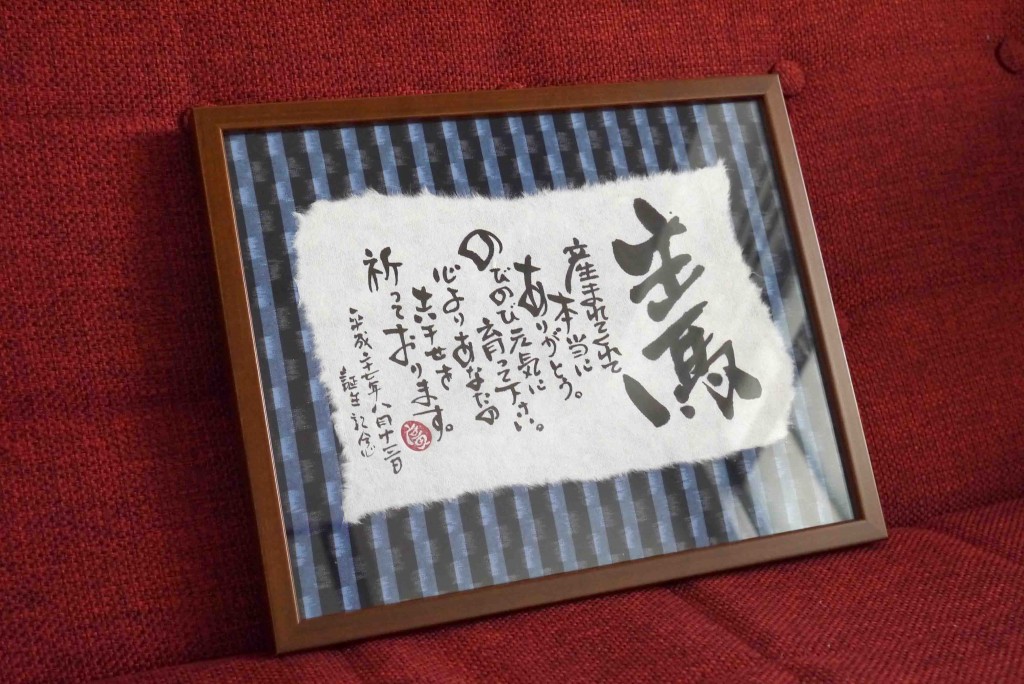 生馬
産まれてくれて
本当に
ありがとう。
のびのび元気に
育って下さい。
心よりあなたの
幸せを
祈っております。
平成二十七年八月十二日
誕生記念